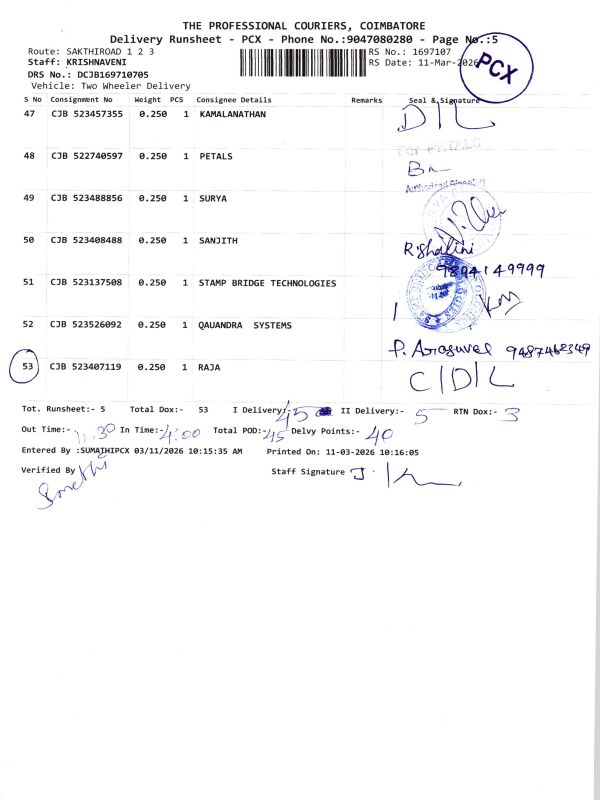 THE PROFESSIONAL COURIERS, COIMBATORE
Delivery Runsheet - PCX - Phone No.:9047080280 - Page No.:5
Route: SAKTHIROAD 1 2 3 RS No.: 1697107
Staff: KRISHNAVENI RS Date: 11-Mar-2026
PCX
DRS No.: DCJB169710705
Vehicle: Two Wheeler Delivery
S No Consignment No Weight PCS Consignee Details Remarks Seal & Signature
47 CJB 523457355 0.250 1 KAMALANATHAN D/L
FOR PETALS
48 CJB 522740597 0.250 1 PETALS
Authorised Signatory
49 CJB 523488856 0.250 1 SURYA
50 CJB 523408488 0.250 1 SANJITH R.Shalini
9894149999
51 CJB 523137508 0.250 1 STAMP BRIDGE TECHNOLOGIES
52 CJB 523526092 0.250 1 QAUANDRA SYSTEMS
P. Arasuvel 9487462349
53 CJB 523407119 0.250 1 RAJA C/D/L
Tot. Runsheet:- 5 Total Dox:- 53 I Delivery:- 45 II Delivery:- 5 RTN Dox:- 3
Out Time:- 11.30 In Time:- 4:00 Total POD:- 45 Delvy Points:- 40
Entered By :SUMATHIPCX 03/11/2026 10:15:35 AM Printed On: 11-03-2026 10:16:05
Verified By Staff Signature